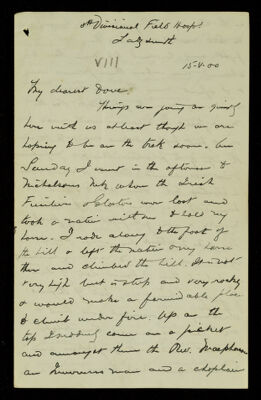 4th Divisional Field Hosp
Ladysmith
VIII 15.V.00
My dearest Dove.
Things are going on quietly
here with us at least though we are
hoping to be on the trek soon. On
Sunday I went in the afternoon to
Nicholsons Nek where the Irish
Fusiliers & Glosters were lost and
took a native with me to hold my
horse. I rode along to the foot of
the hill & left the native & my horse
there and climbed the hill. It's not
very high but is steep and very rocky
& would make a formidable place
to climb under fire. Up on the
top I suddenly came on a picket
and amongst them the Rev.
an Inverness man and a chaplain